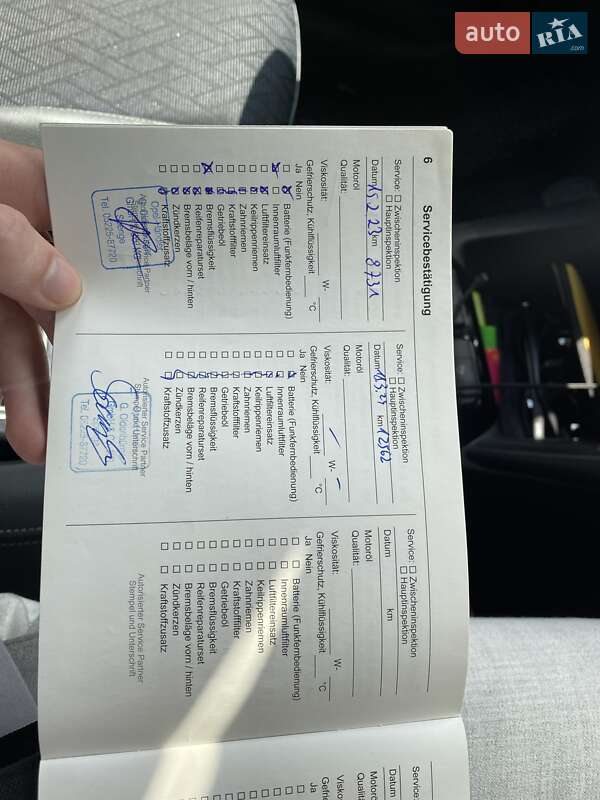 auto RIA .com
6
Servicebestätigung
Service: Zwischeninspektion
Hauptinspektion
Datum 15.2.23 km 8731
Motoröl
Qualität:
Viskosität: W-
Gefrierschutz, Kühlflüssigkeit °C
Ja Nein
Batterie (Funkfernbedienung)
Innenraumluftfilter
Luftfiltereinsatz
Keilrippenriemen
Zahnriemen
Kraftstofffilter
Getriebeöl
Bremsflüssigkeit
Reifenreparaturset
Bremsbeläge vorn / hinten
Zündkerzen
Kraftstoffzusatz
Tel. 05725-87720
Service: Zwischeninspektion
Hauptinspektion
Datum km 12562
Motoröl
Qualität:
Viskosität: W-
Gefrierschutz, Kühlflüssigkeit °C
Ja Nein
Batterie (Funkfernbedienung)
Innenraumluftfilter
Luftfiltereinsatz
Keilrippenriemen
Zahnriemen
Kraftstofffilter
Getriebeöl
Bremsflüssigkeit
Reifenreparaturset
Bremsbeläge vorn / hinten
Zündkerzen
Kraftstoffzusatz
Autorisierter Service Partner
Stempel und Unterschrift
Tel. 05725-87720
Service: Zwischeninspektion
Hauptinspektion
Datum km
Motoröl
Qualität:
Viskosität: W-
Gefrierschutz, Kühlflüssigkeit °C
Ja Nein
Batterie (Funkfernbedienung)
Innenraumluftfilter
Luftfiltereinsatz
Keilrippenriemen
Zahnriemen
Kraftstofffilter
Getriebeöl
Bremsflüssigkeit
Reifenreparaturset
Bremsbeläge vorn / hinten
Zündkerzen
Kraftstoffzusatz
Autorisierter Service Partner
Stempel und Unterschrift
Service:
Datum
Motoröl
Qualität
Gefriers
Ja